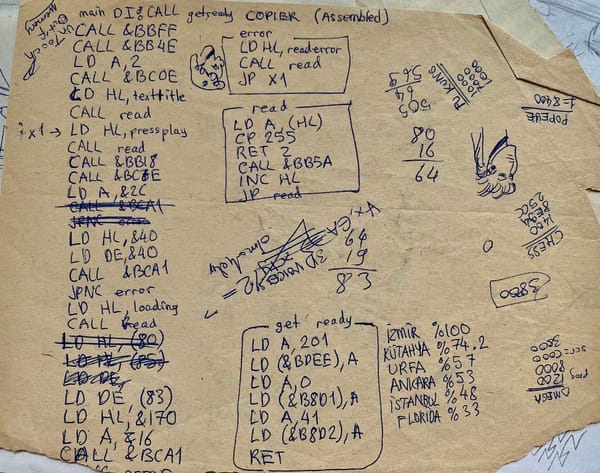 main DISCALL getready COPIER (Assembled)
CALL &BBFF
CALL &BB4E
LD A,2
CALL &BC0E
LD HL,texttitle
CALL read
x1 → LD HL,pressplay
CALL read
CALL &BB18
CALL &BC6E
LD A,&2C
CALL &BCA1
JPNC error
LD HL,&40
LD DE,&40
CALL &BCA1
JPNC error
LD HL,loading
CALL read
LD HL,(80)
LD HL,(85)
LD DE,
LD DE,(83)
LD HL,&170
LD A,&16
CALL &BCA1
error
LD HL,read-error
CALL read
JP X1
read
LD A,(HL)
CP 255
RET Z
CALL &BB5A
INC HL
JP read
get ready
LD A,201
LD (&BDEE),A
LD A,0
LD (&B8D1),A
LD A,41
LD (&B8D2),A
RET
80
16
64
64
19
83
POPEYE
CHESS
3800
İZMİR %100
KÜTAHYA %74,2
URFA %57
ANKARA %53
İSTANBUL %48
FLORIDA %33
OMEGA
1200
8000